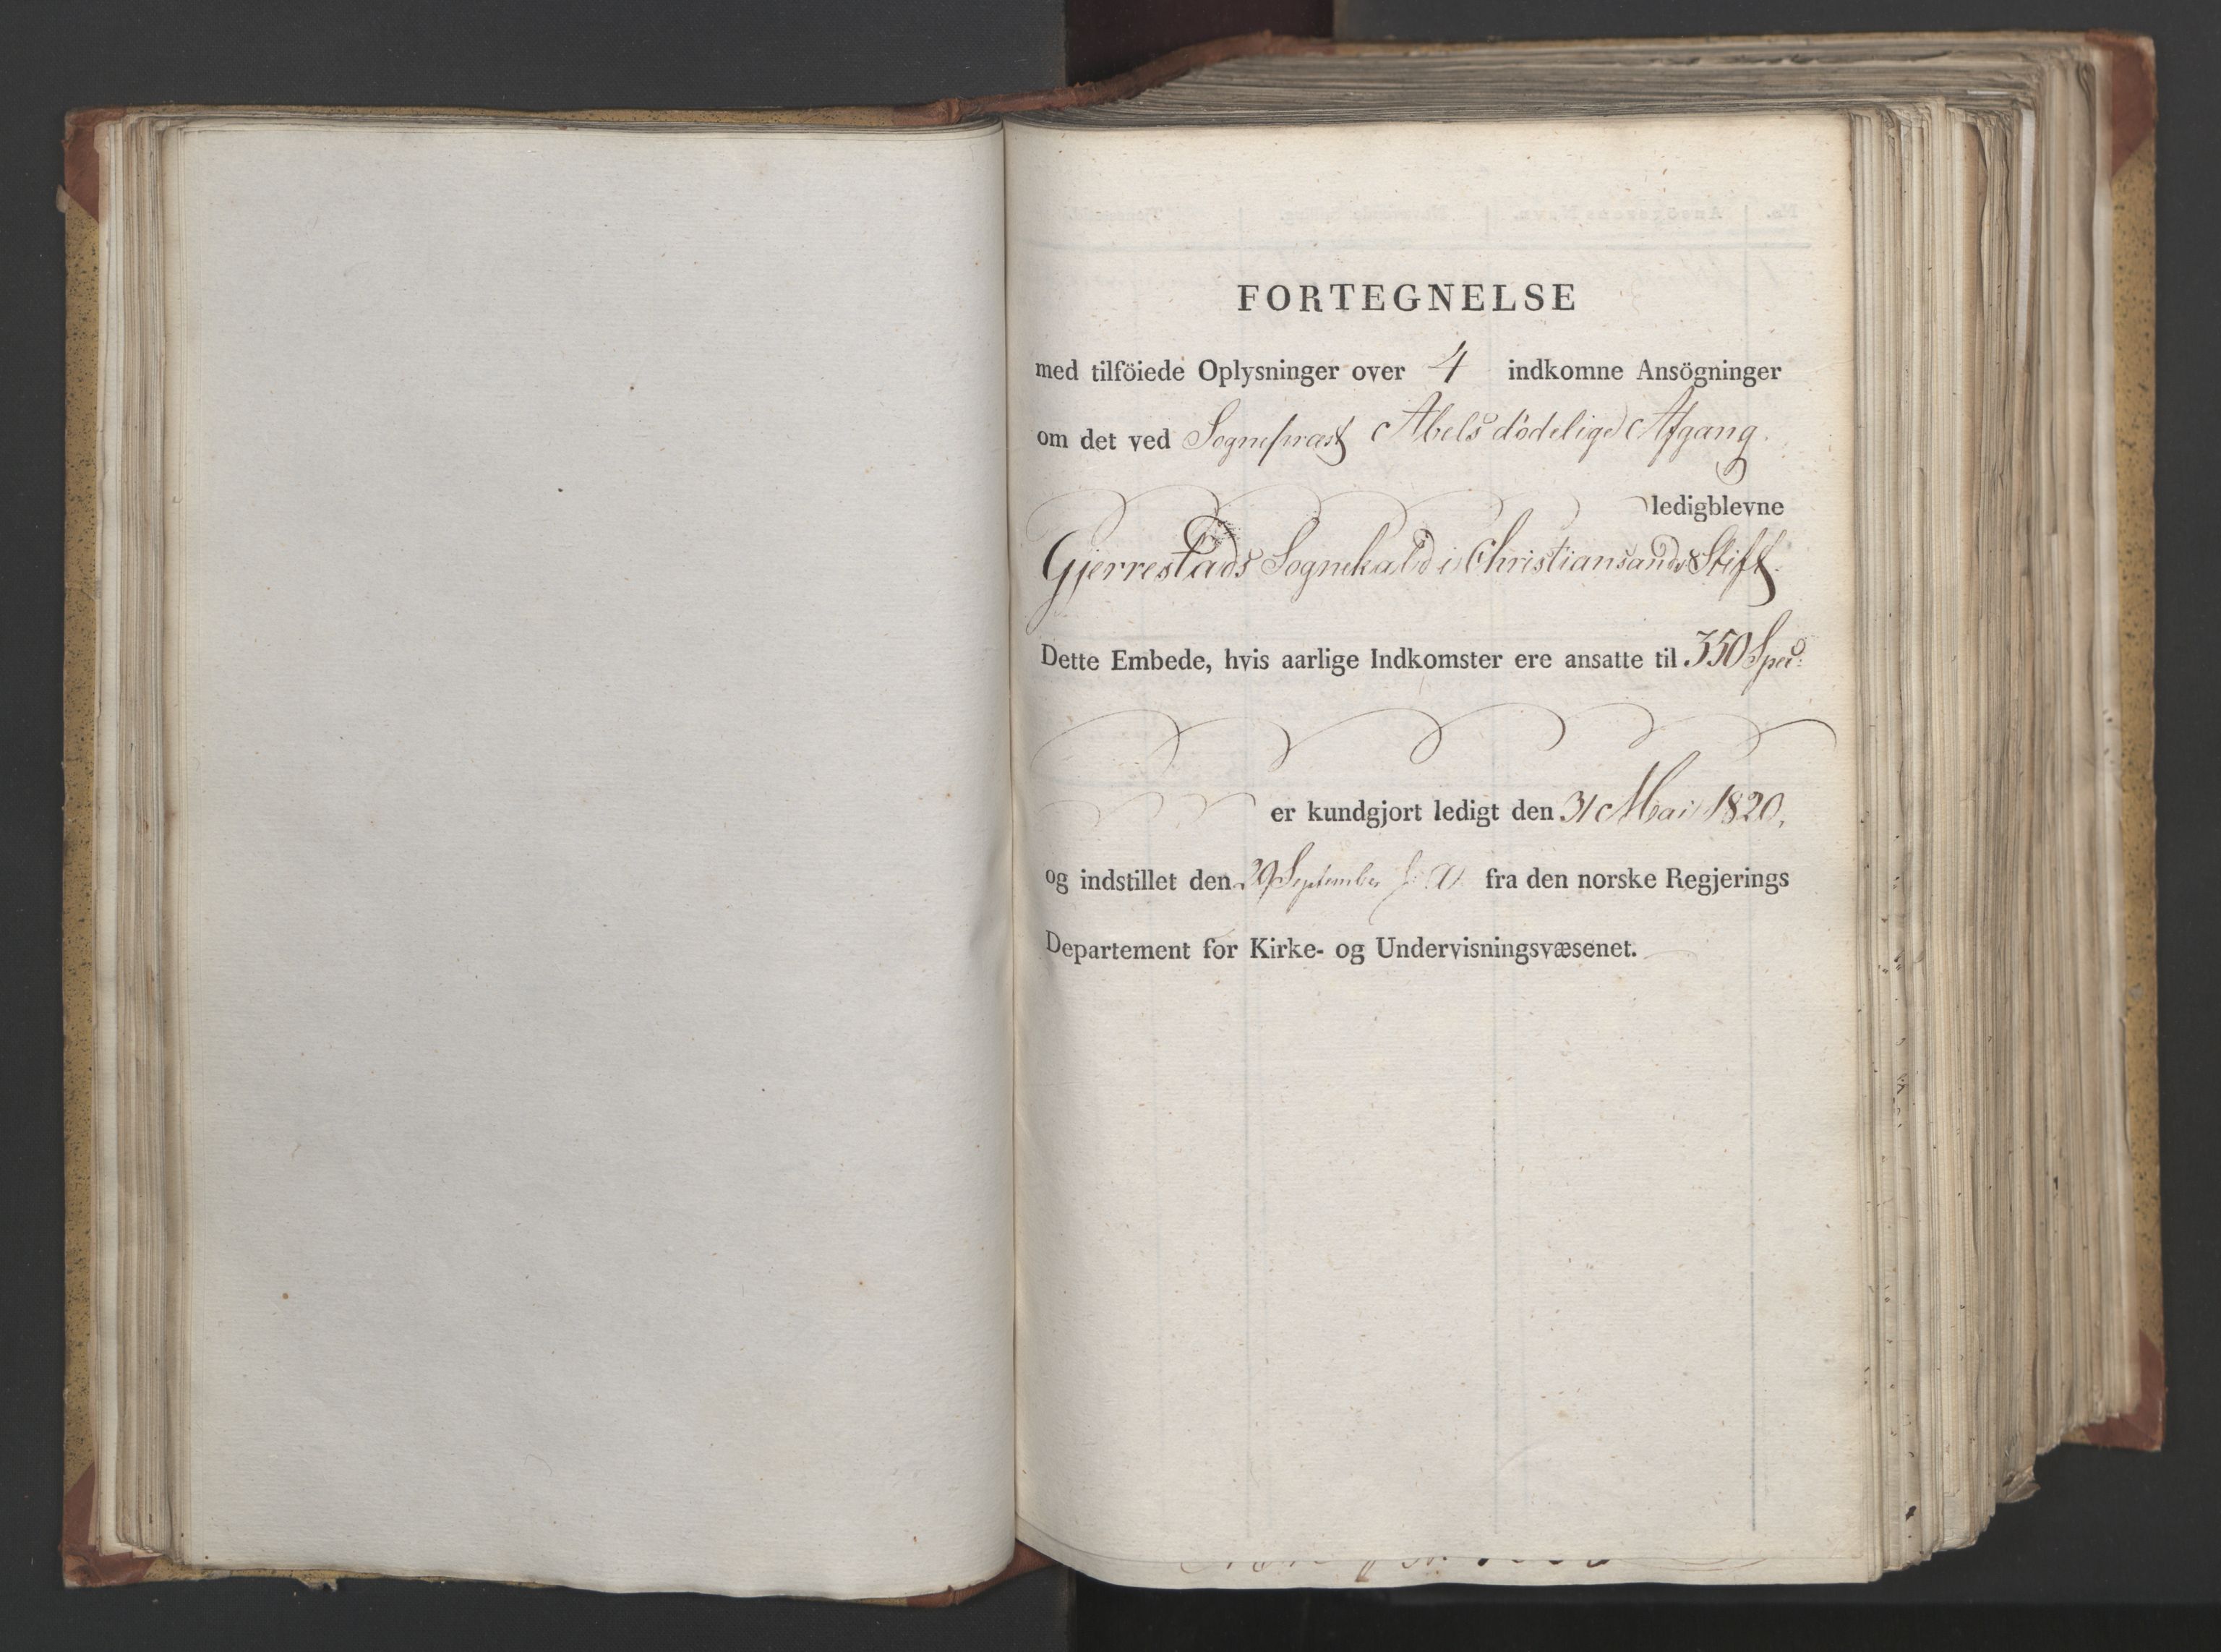 FORTEGNELSE
med tilföiede Oplysninger over 4 indkomne Ansögninger
om det ved Sognepræst Abels dödelige Afgang
ledigblevne
Gjerrestads Sognekald i Christiansands Stift.
Dette Embede, hvis aarlige Indkomster ere ansatte til 350 Spec:
er kundgjort ledigt den 31 Mai 1820,
og indstillet den 29 September s: A. fra den norske Regjerings
Departement for Kirke- og Undervisningsvæsenet.